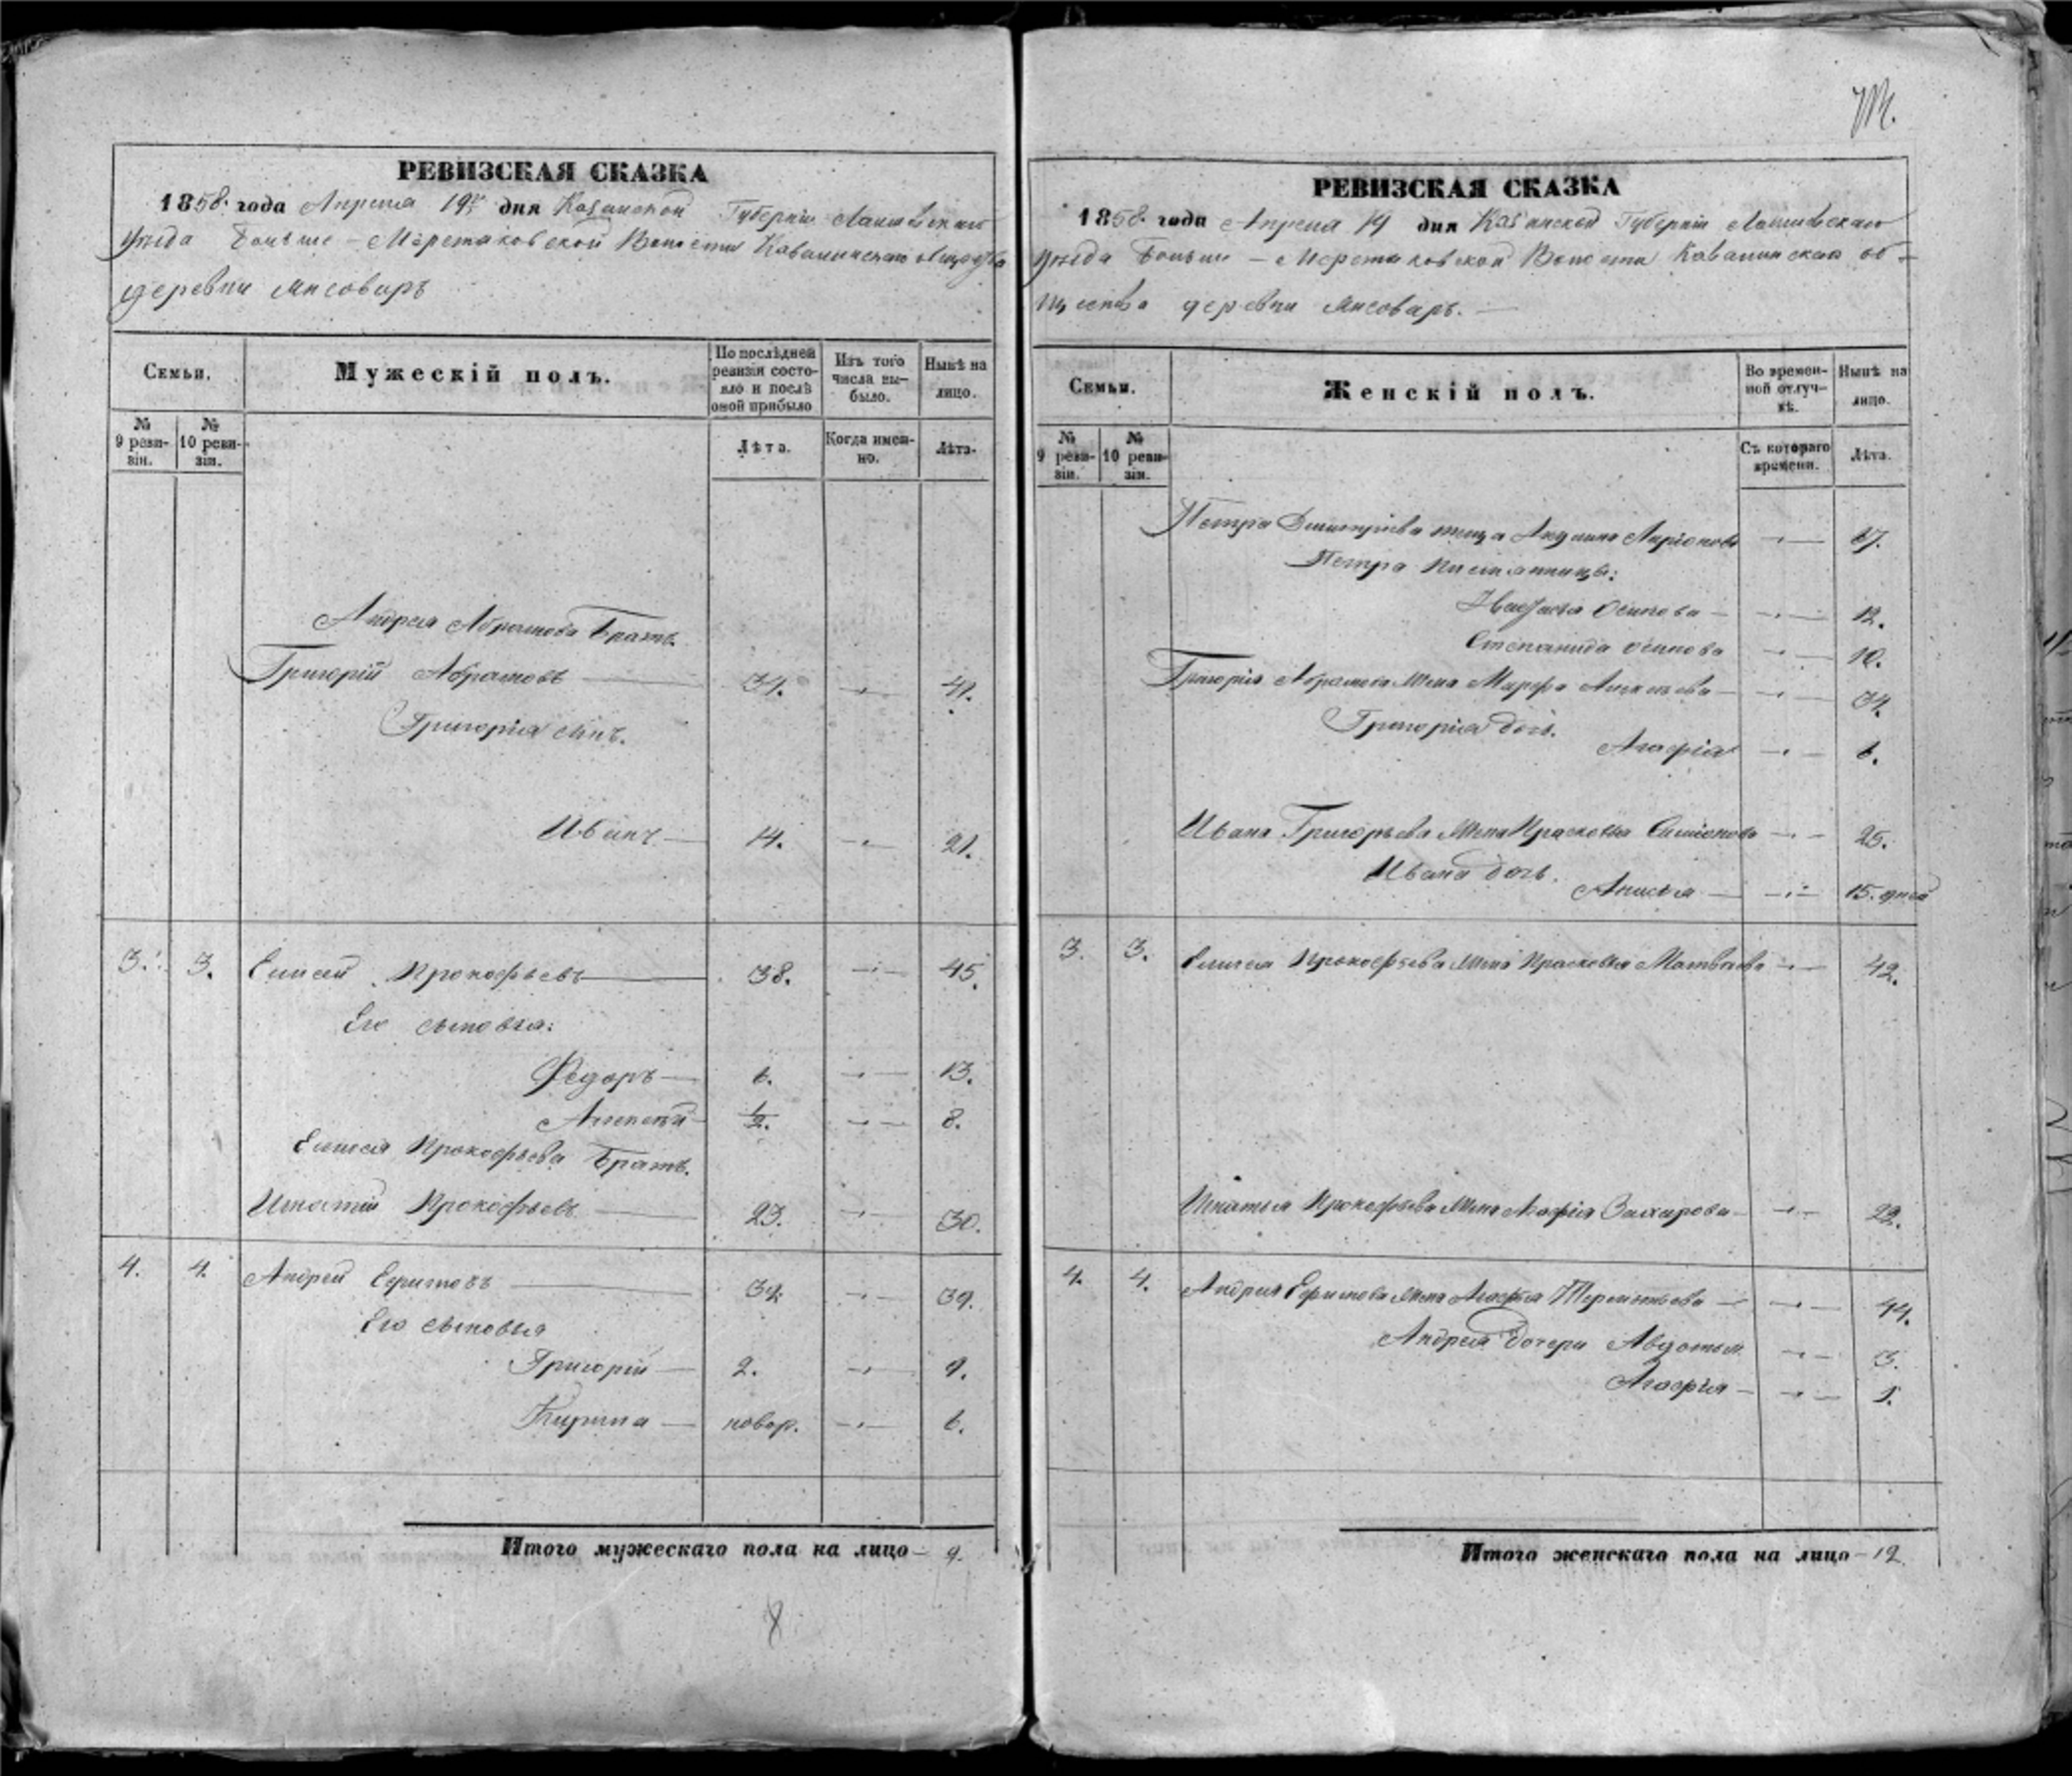 РЕВИЗСКАЯ СКАЗКА
1858. года Апреля 19го дня Казанской Губерніи Лаишевскаго
Уезда Больше-Меретяковской Волости Кавалинскаго общества
деревни Янсоваръ
Семьи.
Мужескій полъ.
По послѣдней ревизіи состояло и послѣ оной прибыло
Изъ того числа выбыло.
Нынѣ на лицо.
№ 9 ревизіи.
№ 10 ревизіи.
Лѣта.
Когда именно.
Лѣта.
Андрея Абрамова Братъ.
Григорій Абрамовъ 34. 41.
Григорія сынъ.
Иванъ 14. 21.
3. 3. Елисей Прокофьевъ 38. 45.
Его сыновья:
Федоръ 6. 13.
Алексѣй 1/2. 8.
Елисея Прокофьева Братъ.
Игнатій Прокофьевъ 23. 30.
4. 4. Андрей Ефимовъ 32. 39.
Его сыновья
Григорій 2. 9.
Кирила новор. 6.
Итого мужескаго пола на лицо 9.
8
РЕВИЗСКАЯ СКАЗКА
1858. года Апреля 19 дня Казанской Губерніи Лаишевскаго
Уезда Больше-Меретяковской Волости Кавалинскаго об-
щества деревни Янсоваръ.
Семьи.
Женскій полъ.
Во временной отлучкѣ.
Нынѣ на лицо.
№ 9 ревизіи.
№ 10 ревизіи.
Съ котораго времени.
Лѣта.
Петра Дмитріева теща Акулина Ларіонова 67.
Петра племянницы:
Настасья Осипова 12.
Степанида Осипова 10.
Григорія Абрамова жена Марфа Алексѣева 34.
Григорія дочь.
Агафія 6.
Ивана Григорьева жена Прасковья Симіонова 25.
Ивана дочь.
Анисья 15. дней
3. 3. Елисея Прокофьева жена Прасковья Матвѣева 42.
Игнатья Прокофьева жена Агафія Захарова 22.
4. 4. Андрея Ефимова жена Агафья Терентьева 44.
Андрея дочери Авдотья 3.
Агафія 1.
Итого женскаго пола на лицо 12.